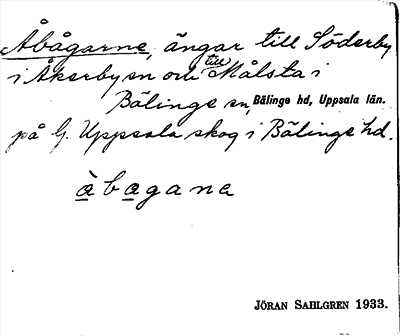 Åbågarne, ängar till Söderby
i Åkerby sn och till Målsta i
Bälinge sn, Bälinge hd, Uppsala län.
på G. Uppsala skog i Bälinge hd.
àbagana
JÖRAN SAHLGREN 1933.